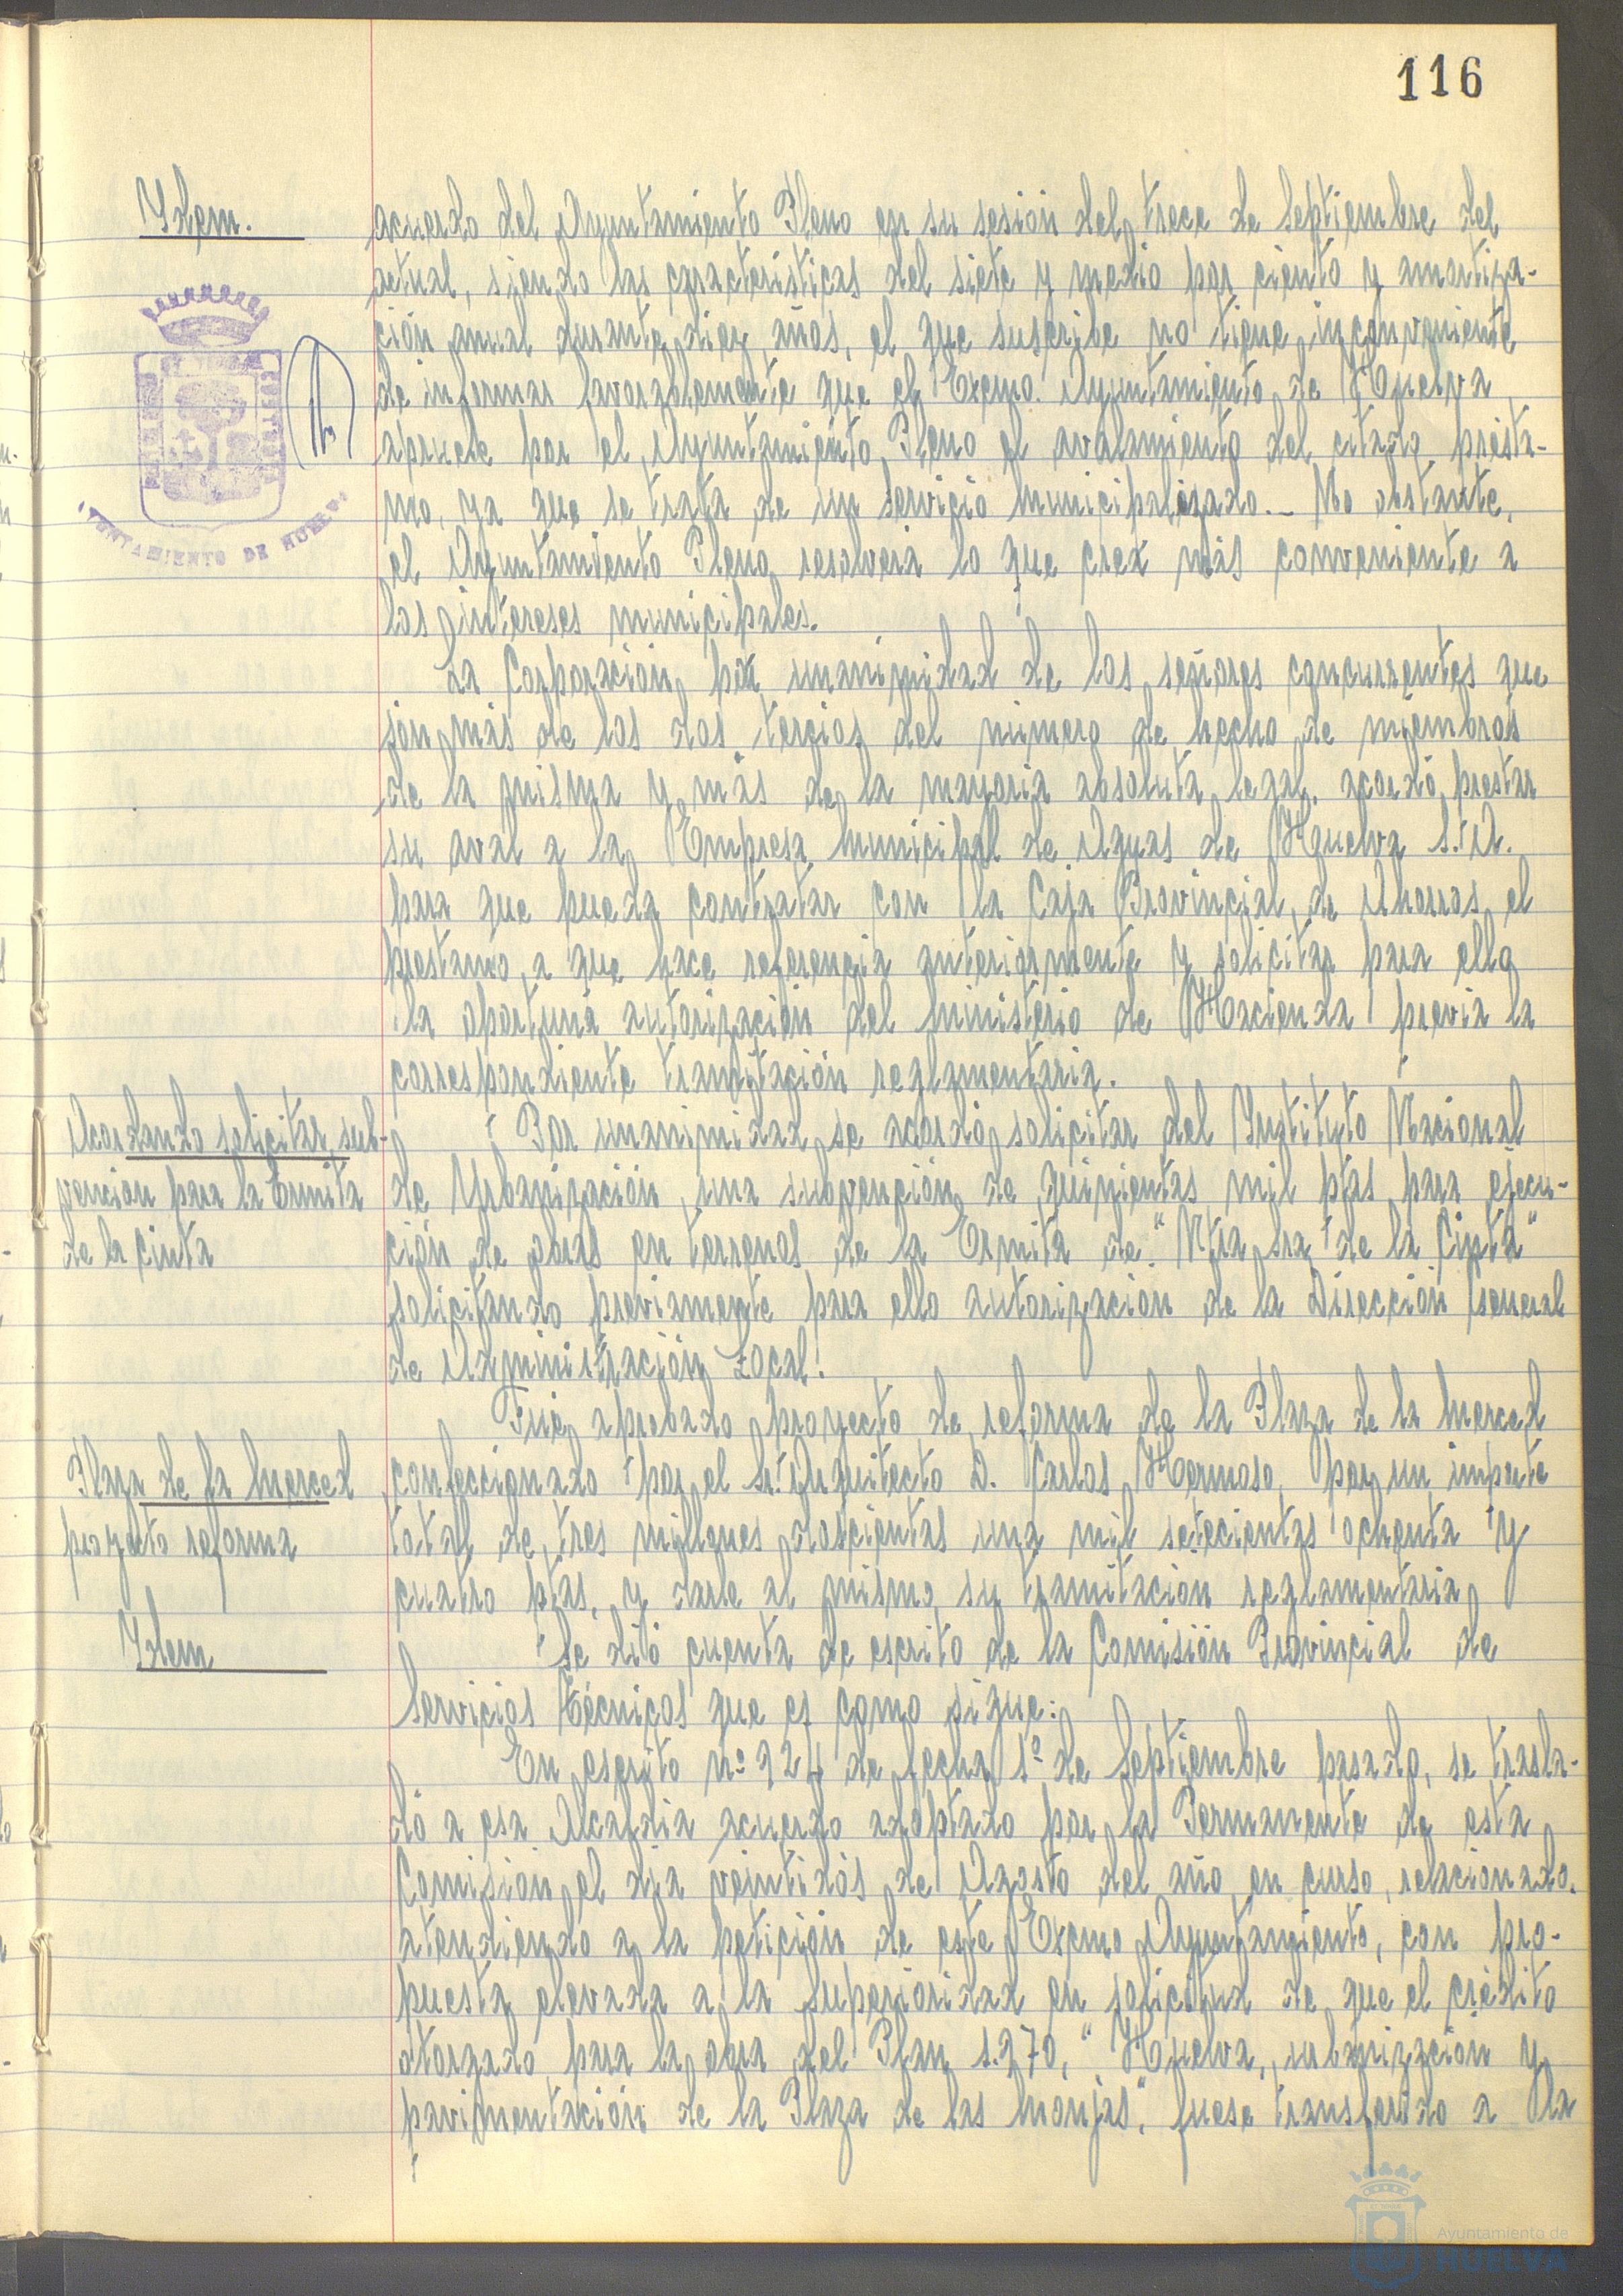 116
Ydem.
acuerdo del Ayuntamiento Pleno en su sesión del trece de Septiembre del
actual, siendo las características del siete y medio por ciento y amortiza-
ción anual durante diez años, el que suscribe no tiene inconveniente
de informar favorablemente que el Excmo. Ayuntamiento de Huelva
apruebe por el Ayuntamiento Pleno el avalamiento del citado présta-
mo, ya que se trata de un Servicio Municipalizado.- No obstante,
el Ayuntamiento Pleno resolverá lo que crea más conveniente a
los intereses municipales.
AYUNTAMIENTO DE HUELVA
La Corporación por unanimidad de los señores concurrentes que
son más de los dos tercios del número de hecho de miembros
de la misma y más de la mayoría absoluta legal, acordó prestar
su aval a la Empresa Municipal de Aguas de Huelva S.A.
para que pueda contratar con la Caja Provincial de Ahorros el
prestamo a que hace referencia anteriormente y solicitar para ello
la oportuna autorización del Ministerio de Hacienda previa la
correspondiente tramitación reglamentaria.
Acordando solicitar sub-
vención para la Ermita
de la Cinta
Por unanimidad se acordó solicitar del Instituto Nacional
de Urbanización una subvención de quinientas mil ptas para ejecu-
ción de obras en terrenos de la Ermita de "Ntra Sra de la Cinta"
solicitando previamente para ello autorización de la Dirección General
de Administración Local.
Plaza de la Merced
proyecto reforma
Fué aprobado proyecto de reforma de la Plaza de la Merced
confeccionado por el Sr. Arquitecto D. Carlos Hermoso, por un importe
total de tres millones doscientas una mil setecientas ochenta y
cuatro ptas, y darle al mismo su tramitación reglamentaria
Ydem
Se dió cuenta de escrito de la Comisión Provincial de
Servicios Técnicos que es como sigue:
En escrito nº 924 de fecha 1º de Septiembre pasado, se trasla-
dó a esa Alcaldia acuerdo adoptado por la Permanente de esta
Comisión el día veintidós de Agosto del año en curso, relacionado.
atendiendo a la petición de este Excmo Ayuntamiento, con pro-
puesta elevada a la Superioridad en solicitud de que el crédito
otorgado para la obra del Plan 1.970, "Huelva, urbanización y
pavimentación de la Plaza de las Monjas", fuese transferido a la
Ayuntamiento de
HUELVA